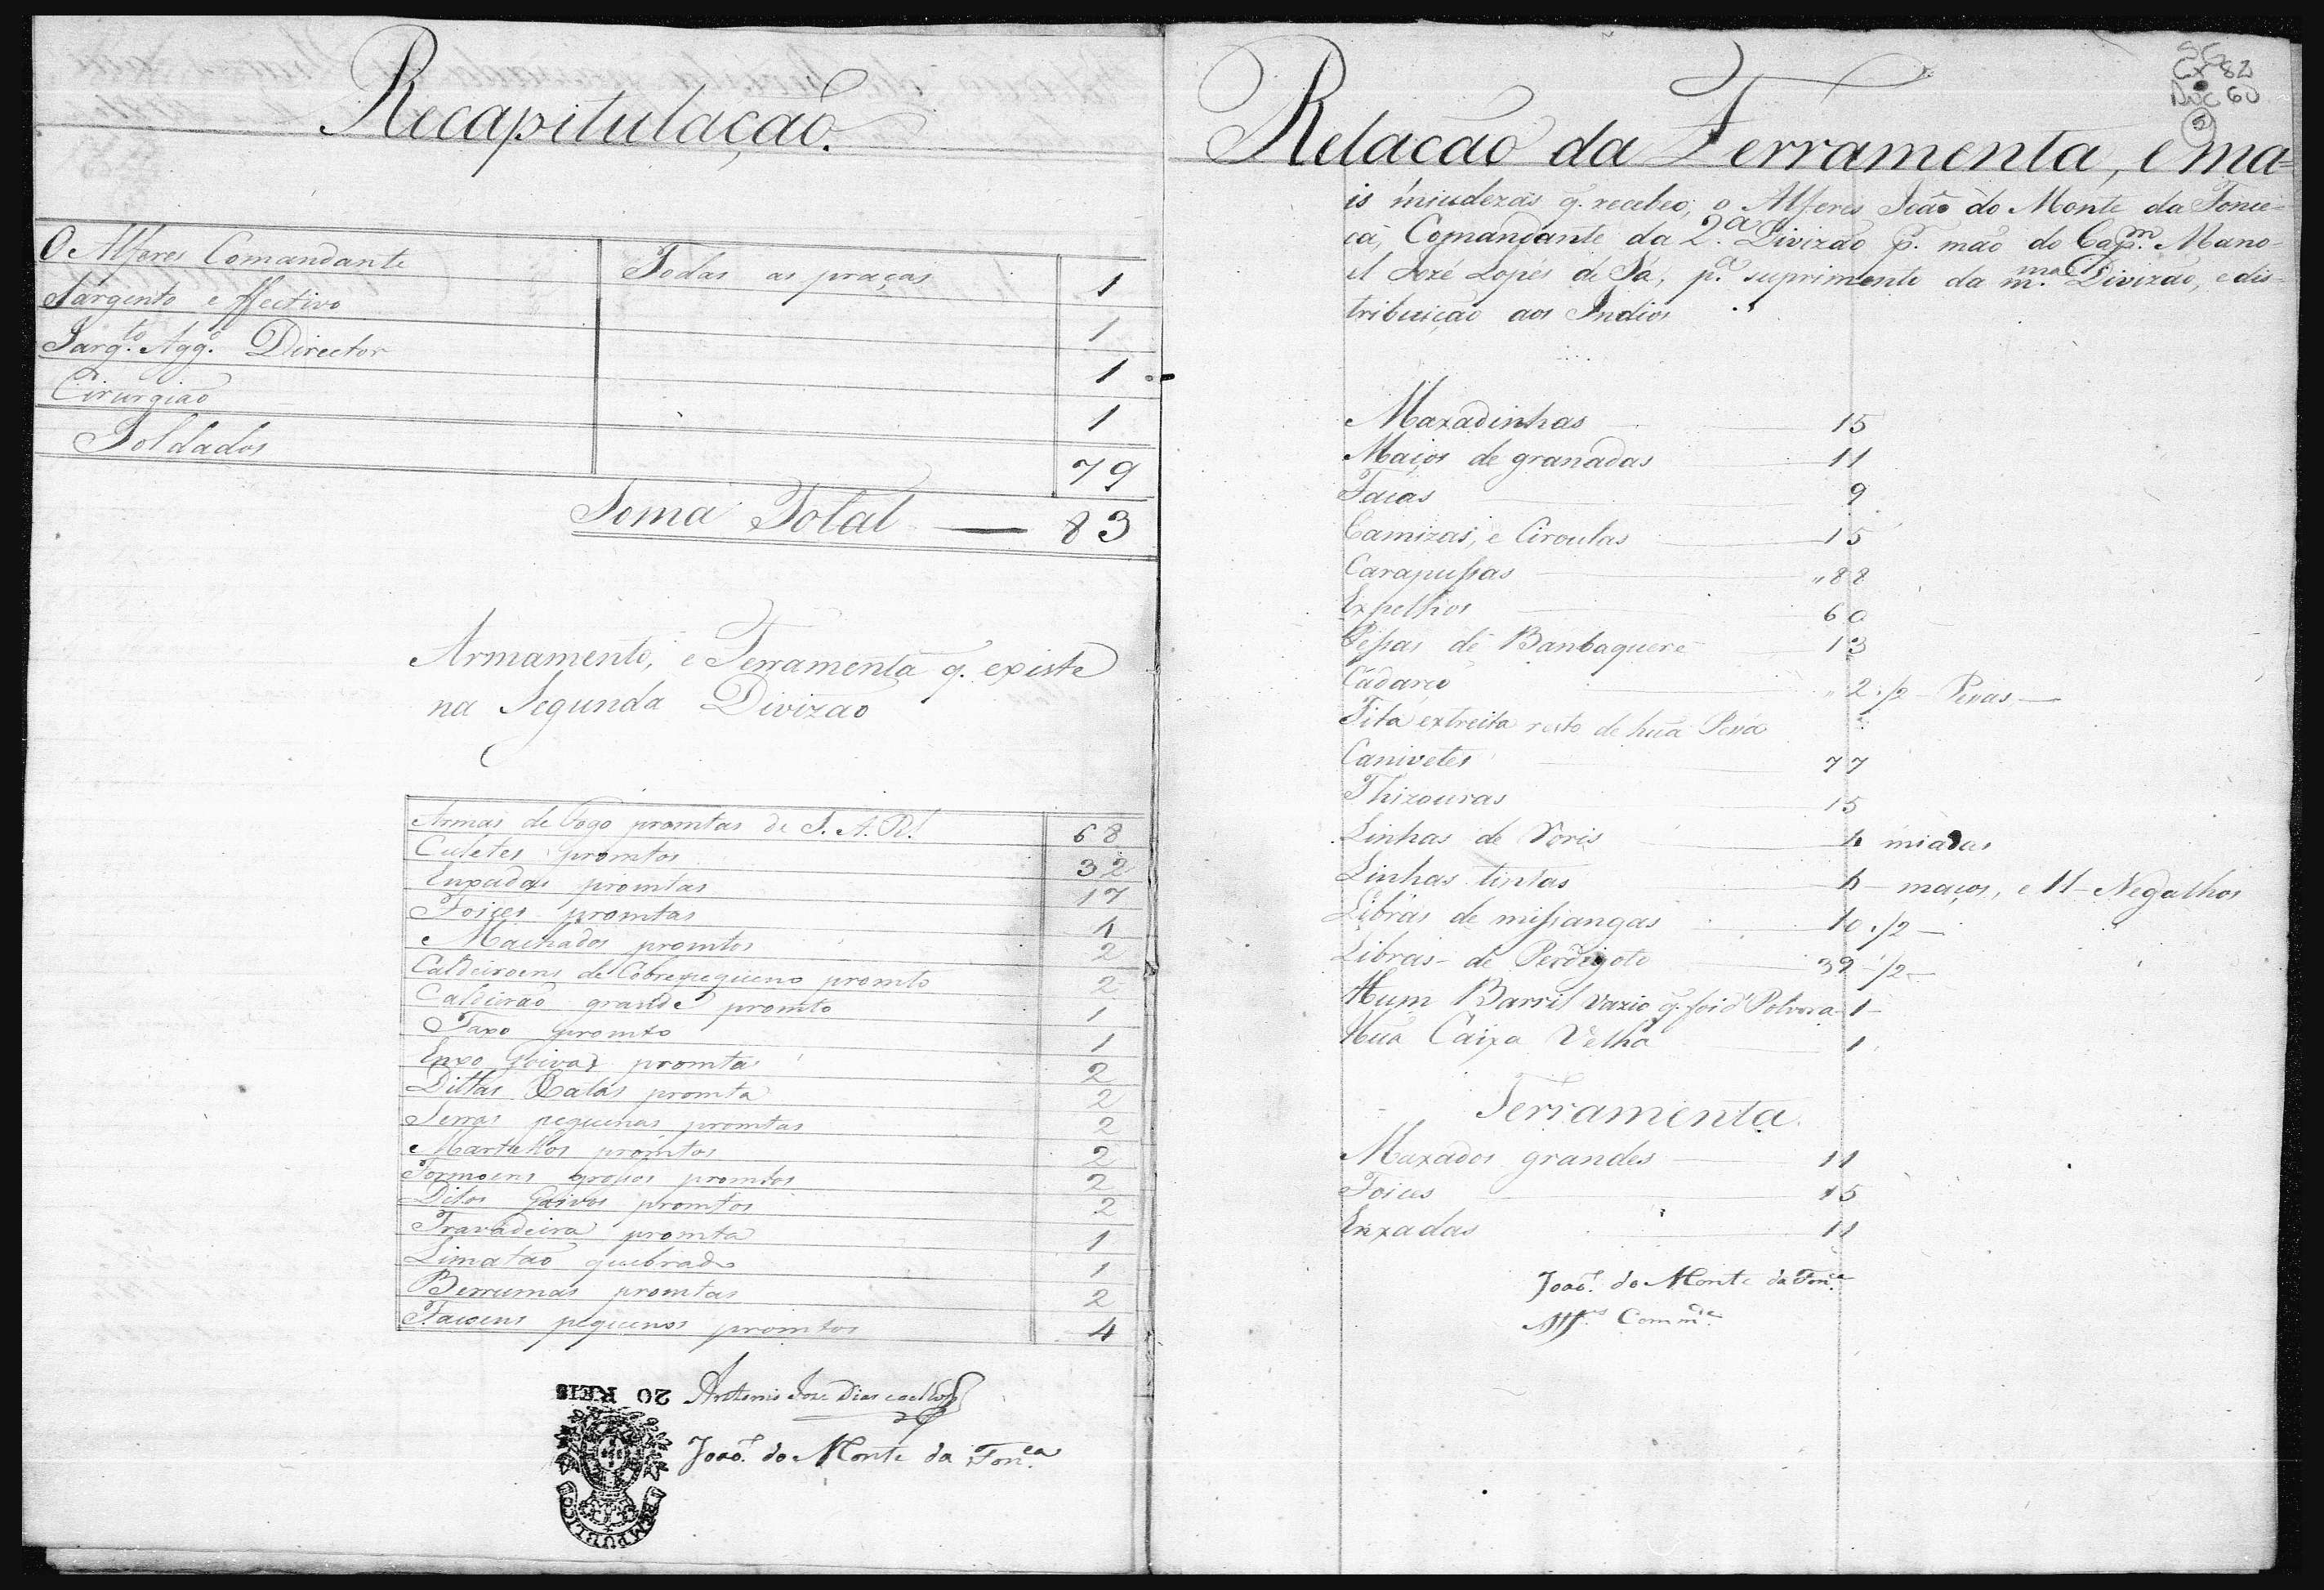 Recapitulação.
O Alferes Comandante Todas as praças 1
Sargento effectivo 1
Sarg.to Agg.o Director 1
Cirurgião 1
Soldados 79
Soma Total — 83
Armamento, e Ferramenta q. existe
na Segunda Divizão
Armas de Fogo promtas de S. A. R. 68
Culetes promtos 32
Enxadas promtas 17
Foices promtas 4
Machados promtos 2
Caldeiroens de Cobre pequeno promto 2
Caldeirão grande promto 1
Taxo promto 1
Enxo Goivas promta 2
Dittas Xatas promta 2
Serras pequenas promtas 2
Martellos promtos 2
Formoens groſsos promtos 2
Ditos Goivos promtos 2
Travadeira promta 1
Limatão quebrado 1
Berrumas promtas 2
Facoens pequenos promtos 4
20 REIS
Antonio Joze Dias Coelho
João do Monte da Fon.ca
Cx 82
Doc 60
Relacão da Ferramenta, e ma=
is miudezas q. recebeo, o Alferes João do Monte da Fonce-
ca, Comandante da 2.a Divizão p. mão do Cap.m Mano-
el Jozé Lopes de Sá, p.a suprimento da m.ma Divizão, e dis-
tribuicão aos Indios
Maxadinhas 15
Maços de granadas 11
Facas 9
Camizas, e Ciroulas 15
Carapuſsas 88
Expelhos 60
Peſsas de Banbaquere 13
Cadarço 2 1/2 Pesas —
Fita extreita resto de huã Pesa
Canivetes 77
Thizouras 15
Linhas de Noris 4 miadas
Linhas tintas 4 maços, e 11 Negalhos
Libras de miſsangas 10 1/2 —
Libras de Perdigoto 39 1/2 —
Hum Barril vazio q. foi d' Polvora 1
Huã Caixa Velha 1
Ferramenta.
Maxados grandes 11
Foices 15
Enxadas 11
João do Monte da Fon.ca
Alf.es Comm.de